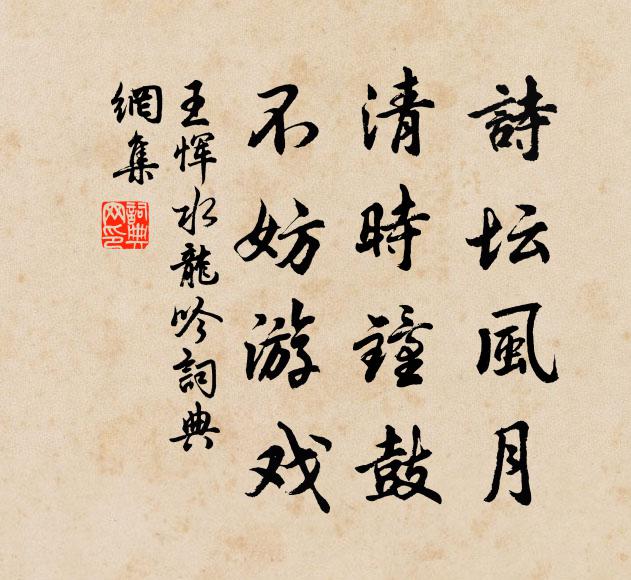 詩坛風月
清時鐘鼓
不妨游戏
王恽水龍吟詞典
網集
詞典
网印